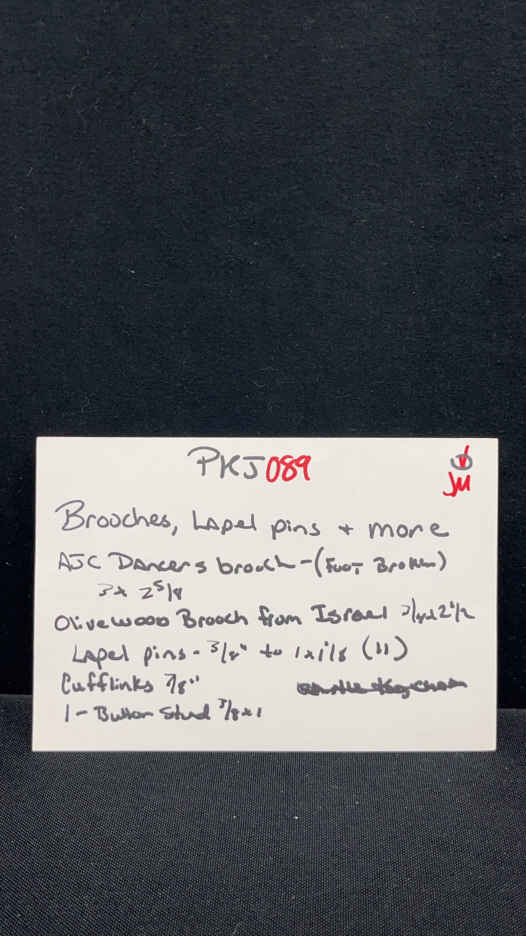 PKJ089
JM
Brooches, Lapel pins + more
AJC Dancers brooch - (Foot Broken)
3x 2 5/8
Olivewood Brooch from Israel 3/4x2 1/2
Lapel pins - 3/8" to 1x1 1/8 (11)
Cufflinks 7/8"
1 - Button Stud 7/8x1